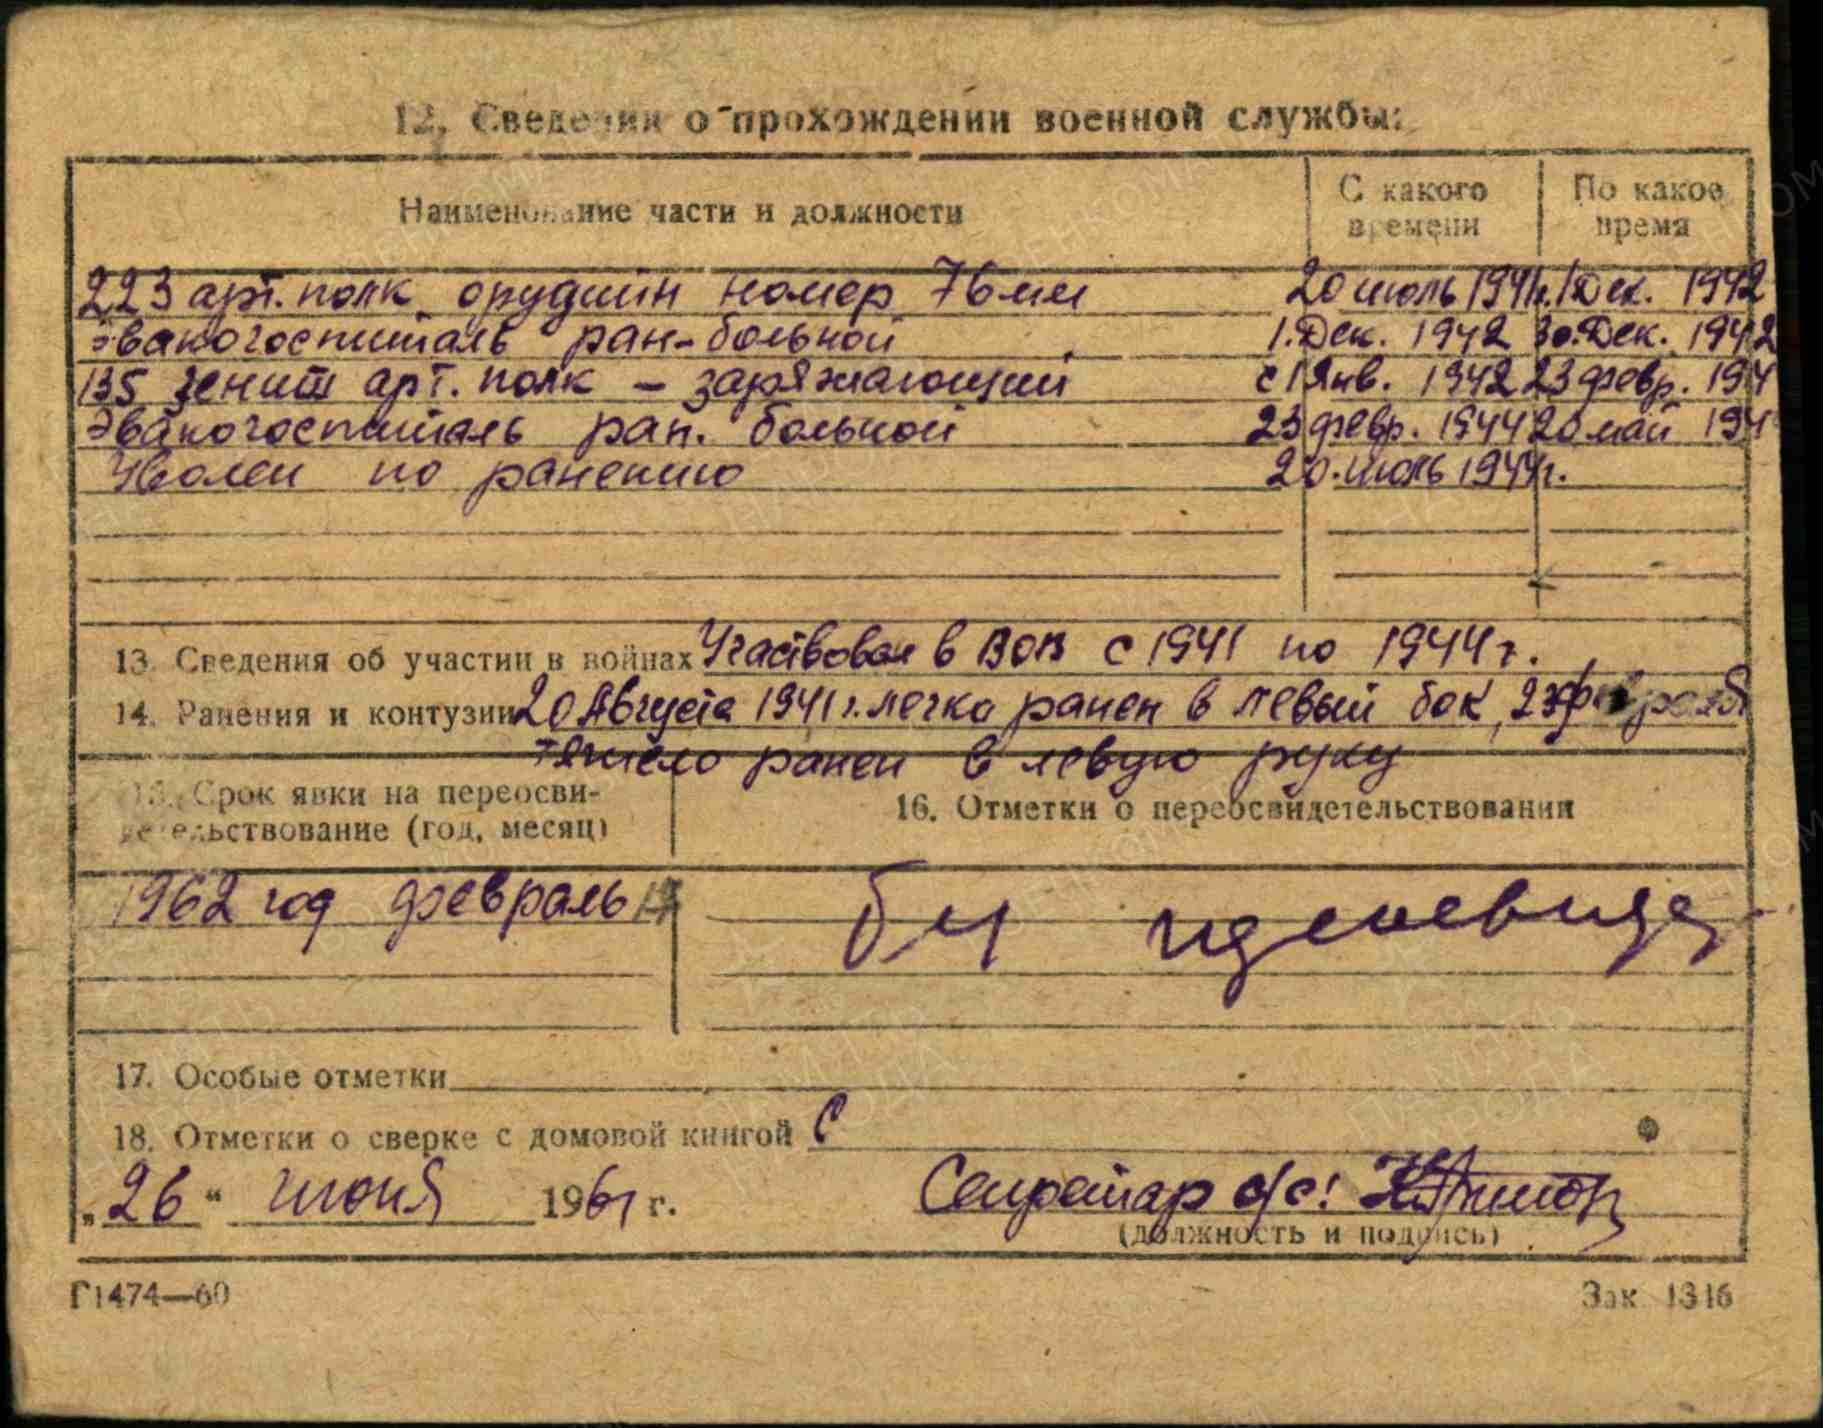 12. Сведения о прохождении военной службы:
Наименование части и должности
С какого времени
По какое время
223 арт. полк орудийн номер 76 мм 20 июль 1941г. 1 Дек. 1942
Эвакогоспиталь ран-больной 1. Дек. 1942 30. Дек. 1942
135 зенит арт. полк – заряжающий с 1 Янв. 1942 23 февр. 194
Эвакогоспиталь ран. больной 23 февр. 1944 20 май 194
Уволен по ранению 20. июль 1944г.
13. Сведения об участии в войнах Участвовал в ВОВ с 1941 по 1944 г.
14. Ранения и контузии 20 Августа 1941 г. легко ранен в левый бок, февраля
тяжело ранен в левую руку
15. Срок явки на переосви-
детельствование (год, месяц)
16. Отметки о переосвидетельствовании
1962 год февраль
17. Особые отметки
18. Отметки о сверке с домовой книгой С
„26“ июня 1961 г. Секретар с/с:
(должность и подпись)
Г1474—60 Зак 1316